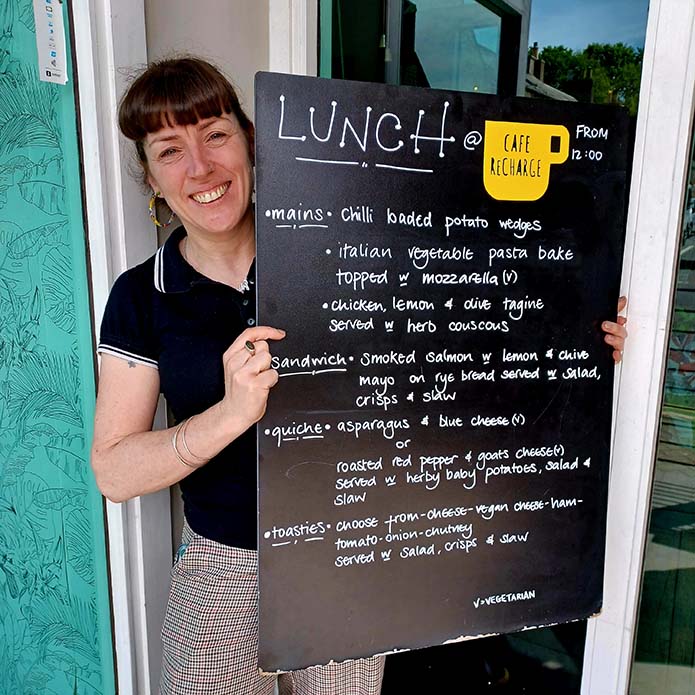 LUNCH @ CAFE RECHARGE FROM 12:00
•mains• chilli loaded potato wedges
• italian vegetable pasta bake
topped w mozzarella (v)
• chicken, lemon & olive tagine
served w herb couscous
•sandwich• smoked salmon w lemon & chive
mayo on rye bread served w salad,
crisps & slaw
•quiche• asparagus & blue cheese (v)
or
roasted red pepper & goats cheese (v)
served w herby baby potatoes, salad &
slaw
•toasties• choose from-cheese-vegan cheese-ham-
tomato-onion-chutney
served w salad, crisps & slaw
V=VEGETARIAN